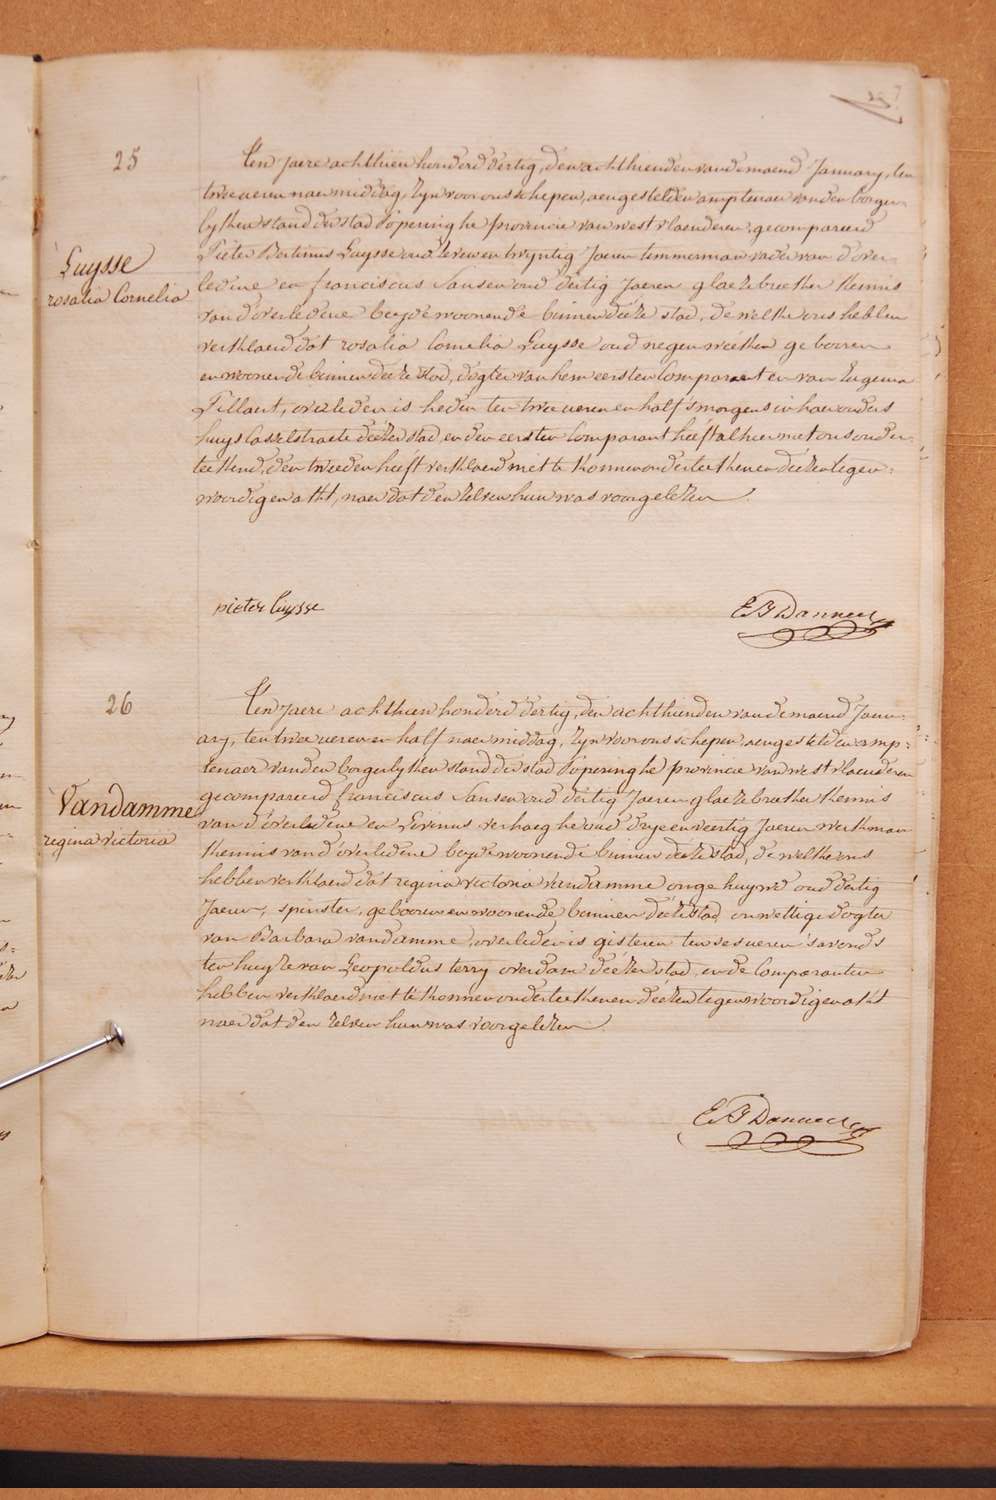 25
Ten jaere achthien honderd dertig, den achthienden van de maend January, ten
twee ueren naer middag, zyn voor ons schepen, aengestelden amptenaer van den borger-
lyken stand der stad Poperinghe provincie van west vlaenderen, gecompareerd
Pieter Bertinus Luysse oud zeven en twyntig Jaeren timmerman vader van d'over-
ledene en franciscus Sansen oud dertig Jaeren glaezebrecker kennis
van d'overledene beyde woonende binnen deéze stad, de welke ons hebben
verklaerd dat rosalia Cornelia Luysse oud negen weeken geboren
en woonende binnen deéze stad, dogter van hem eersten Comparant en van Eugenia
Tillaert, overleden is heden ten twee ueren en half s'morgens in haer ouders
huys Casselstraete deézer stad, en den eersten Comparant heeft alhier met ons onder-
teekend, den tweeden heeft verklaerd niet te konnen onderteekenen deézen tegen-
woordigen akt, naer dat den zelven hun was voorgelezen.
Luysse
rosalia Cornelia
pieter luysse
E B Danneel
26
Ten Jaere achthien honderd dertig, den achthienden van de maend Janu-
ary, ten twee ueren en half naer middag, zyn voor ons schepen, aengestelden amp-
tenaer van den borgerlyken stand der stad Poperinghe provincie van west vlaenderen
gecompareerd franciscus Sansen oud dertig Jaeren glaezebrecker kennis
van d'overledene en Livinus verhaeghe oud dryenveertig Jaeren werkman
kennis van d'overledene beyde woonende binnen deéze stad, de welke ons
hebben verklaerd dat regina victoria vandamme ongehuywd oud dertig
Jaeren, spinster, geboren en woonende binnen deéze stad, onwettige dogter
van Barbara vandamme, overleden is gisteren ten ses ueren s'avonds
ten huyze van Leopoldus terry overdam deézer stad, en de Comparanten
hebben verklaerd niet te konnen onderteekenen deézen tegenwoordigen akt
naer dat den zelven hun was voorgelezen.
Vandamme
regina victoria
E B Danneel